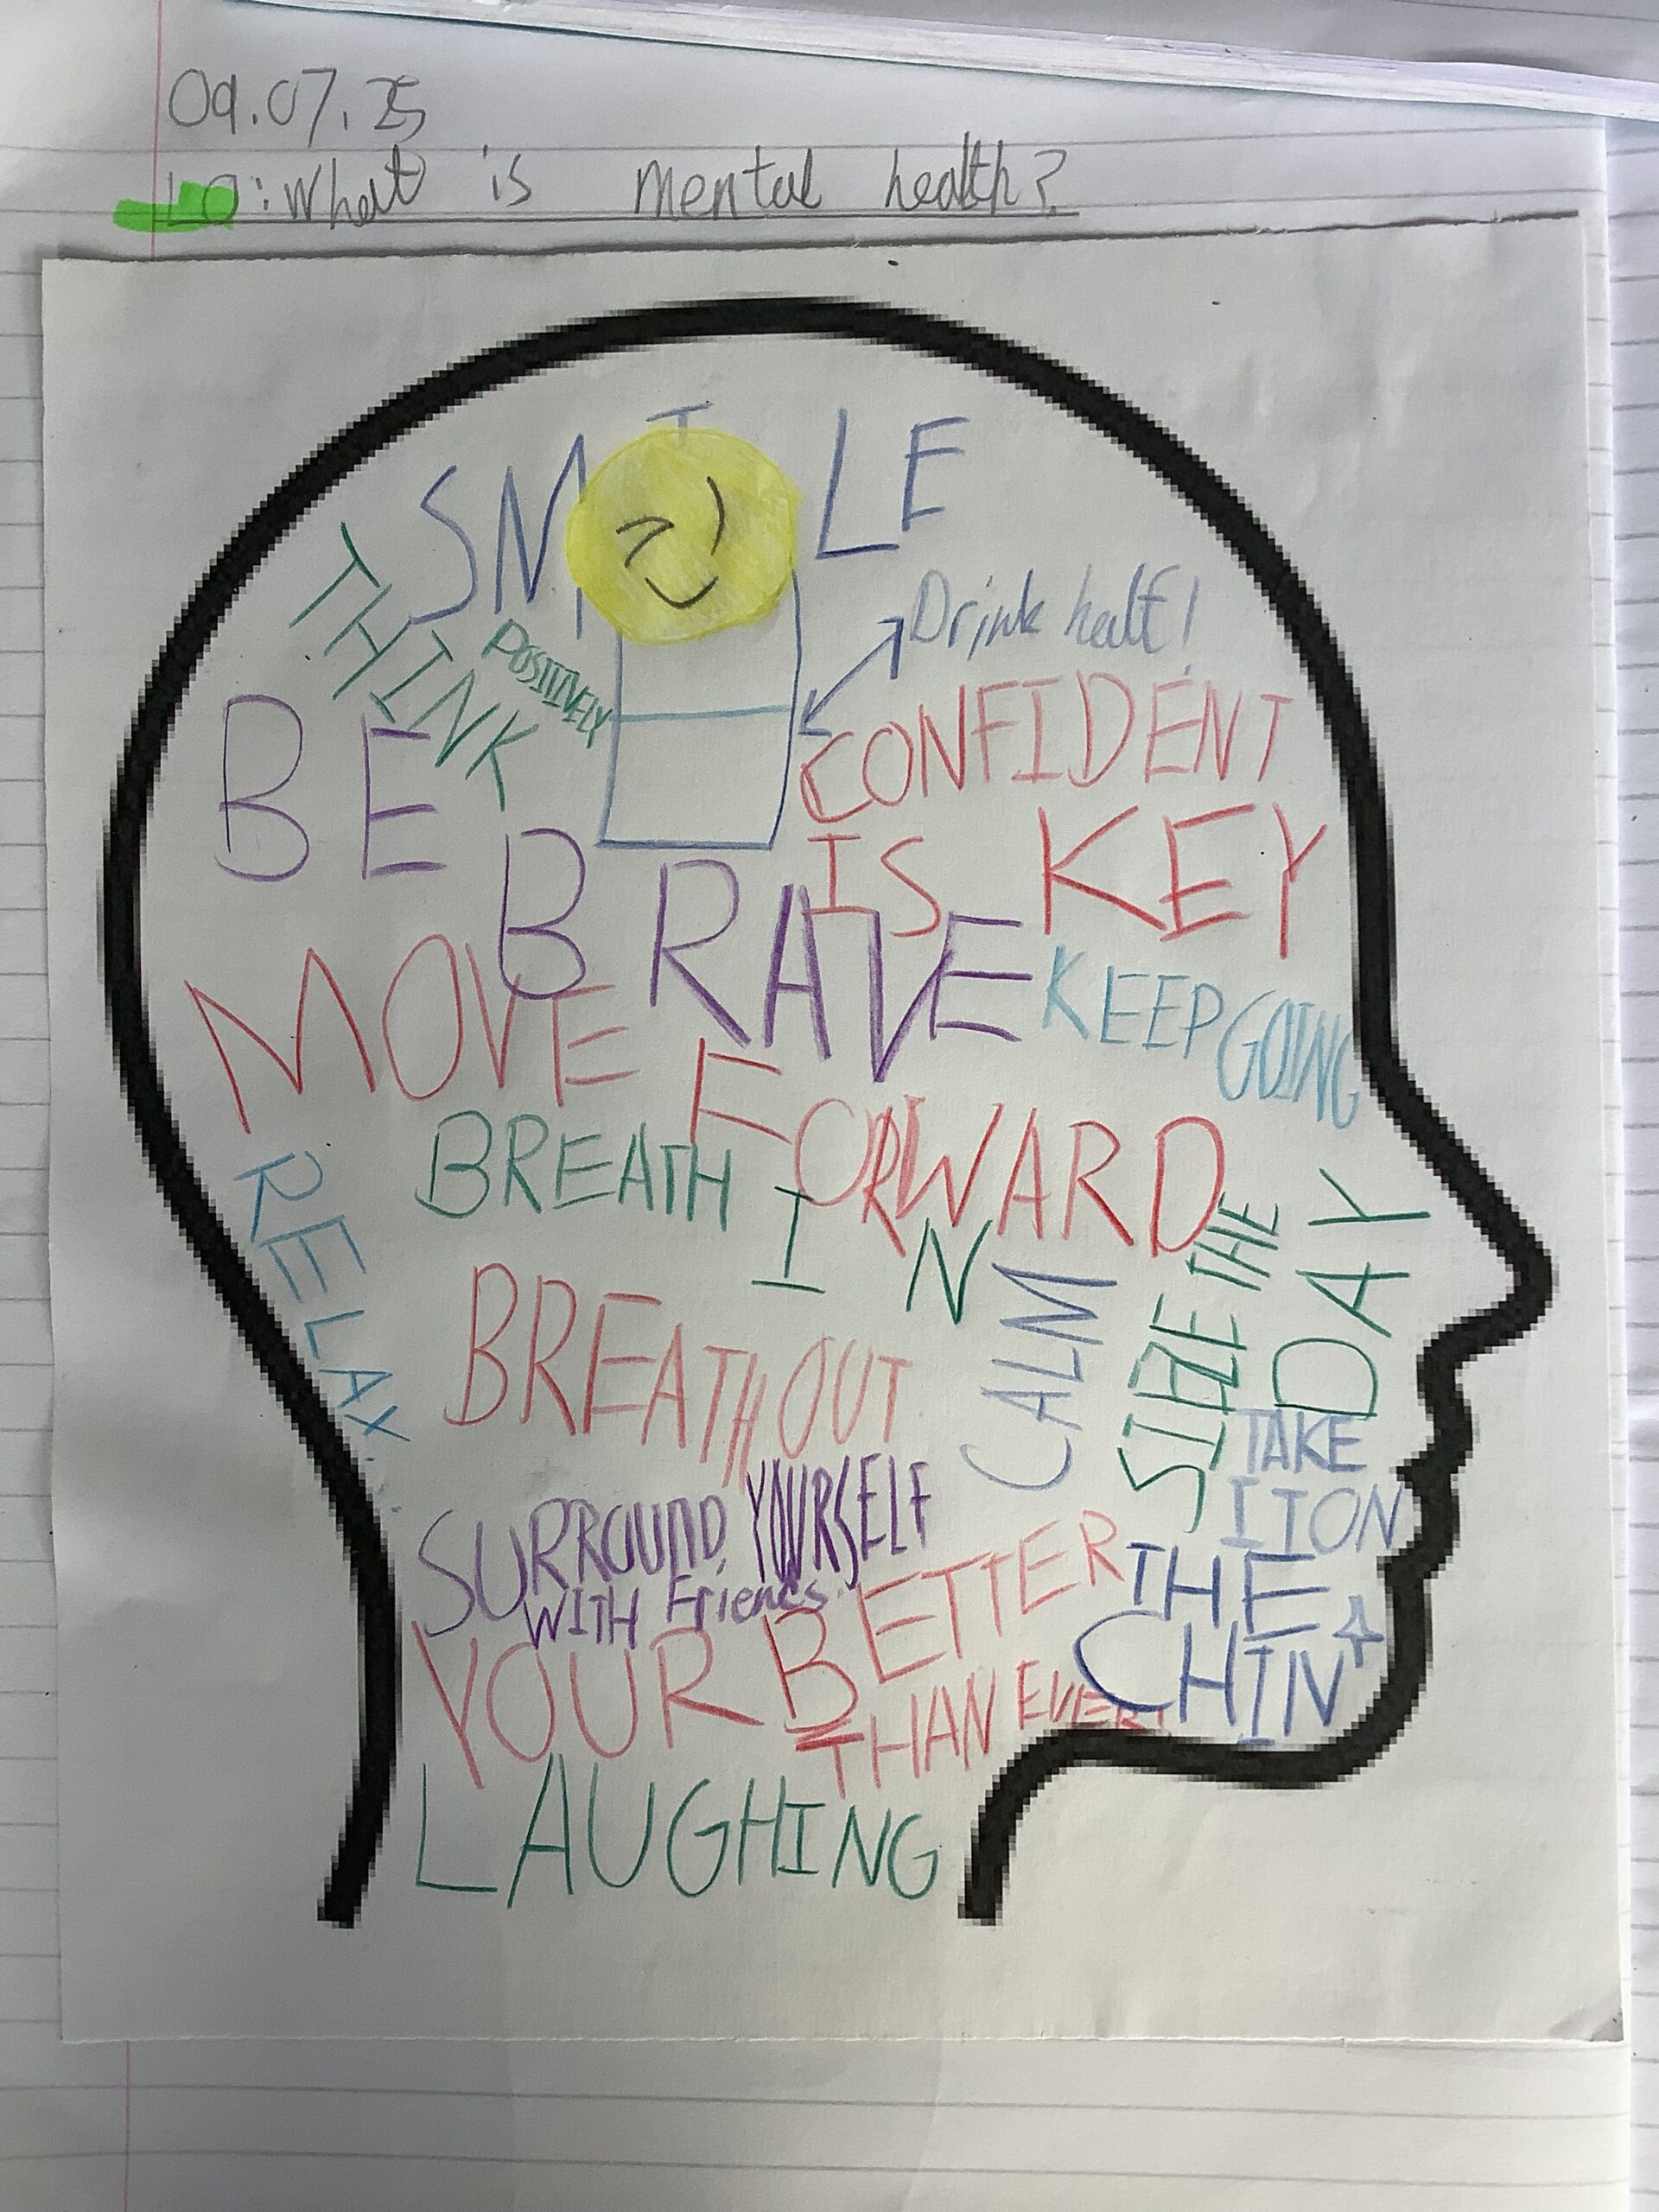 09.07.25
LO: What is mental health?
SMILE
THINK
POSITIVELY
Drink half!
CONFIDENT
IS KEY
BE
BRAVE
KEEP GOING
MOVE
FORWARD
BREATH
IN
RELAX
BREATH OUT
CALM
SIEZE THE
DAY
TAKE
IT ON
THE
CHIN
SURROUND YOURSELF
WITH Friends.
YOUR BETTER
THAN EVER!
LAUGHING